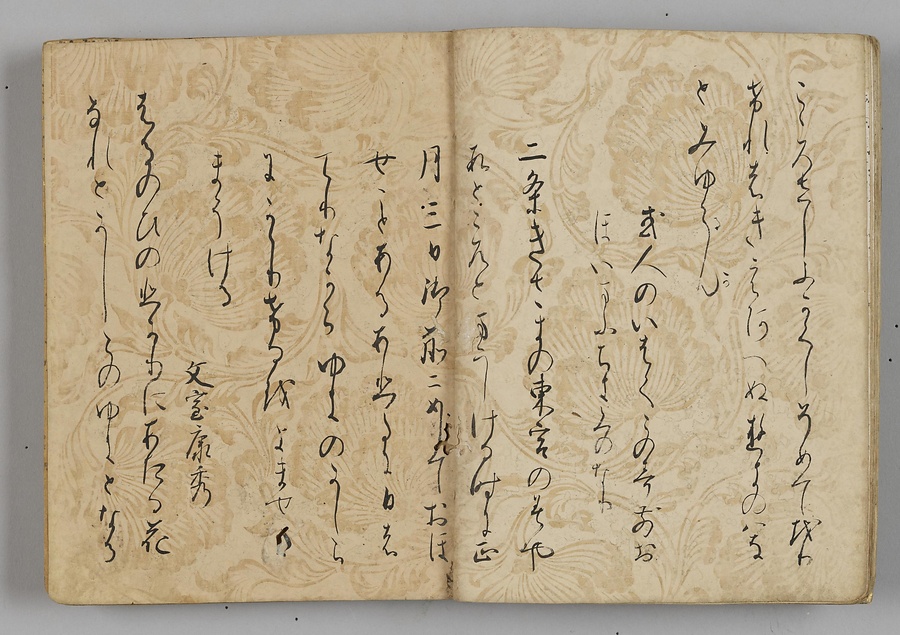 こゝろさしふかくそめてしをり
けれはきえあへぬゆきのはな
とみゆらん
或人のいはくこの哥前お
ほいまうちきみのなり
二条きさきの東宮のみや
すところと申しける時に正
月三日御前にめしておほ
せことあるあひたに日は
てりなからゆきのかしら
にふりけるをよませ
ける
文室康秀
はるのひのひかりにあたる花
なれとかしらのゆきとなる